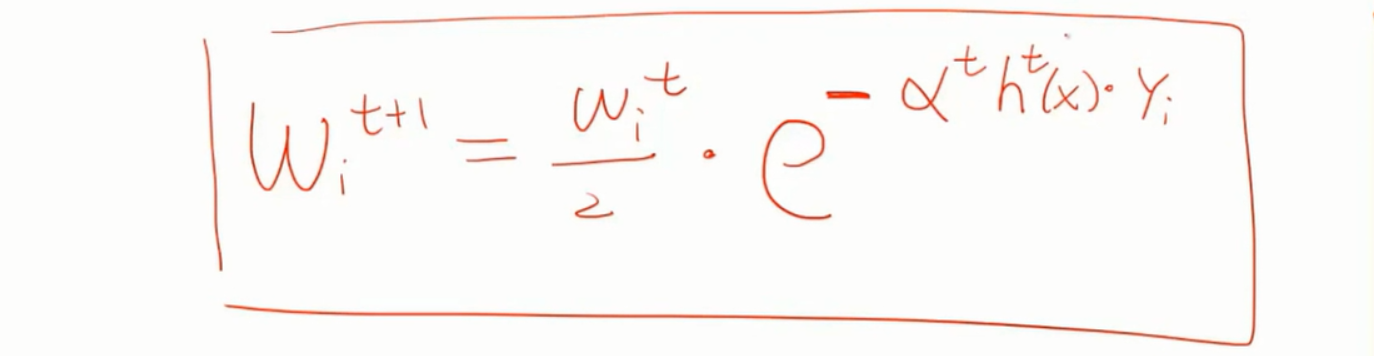 w_i^{t+1} = \frac{w_i^t}{2} \cdot e^{-\alpha^t h^t(x) \cdot y_i}